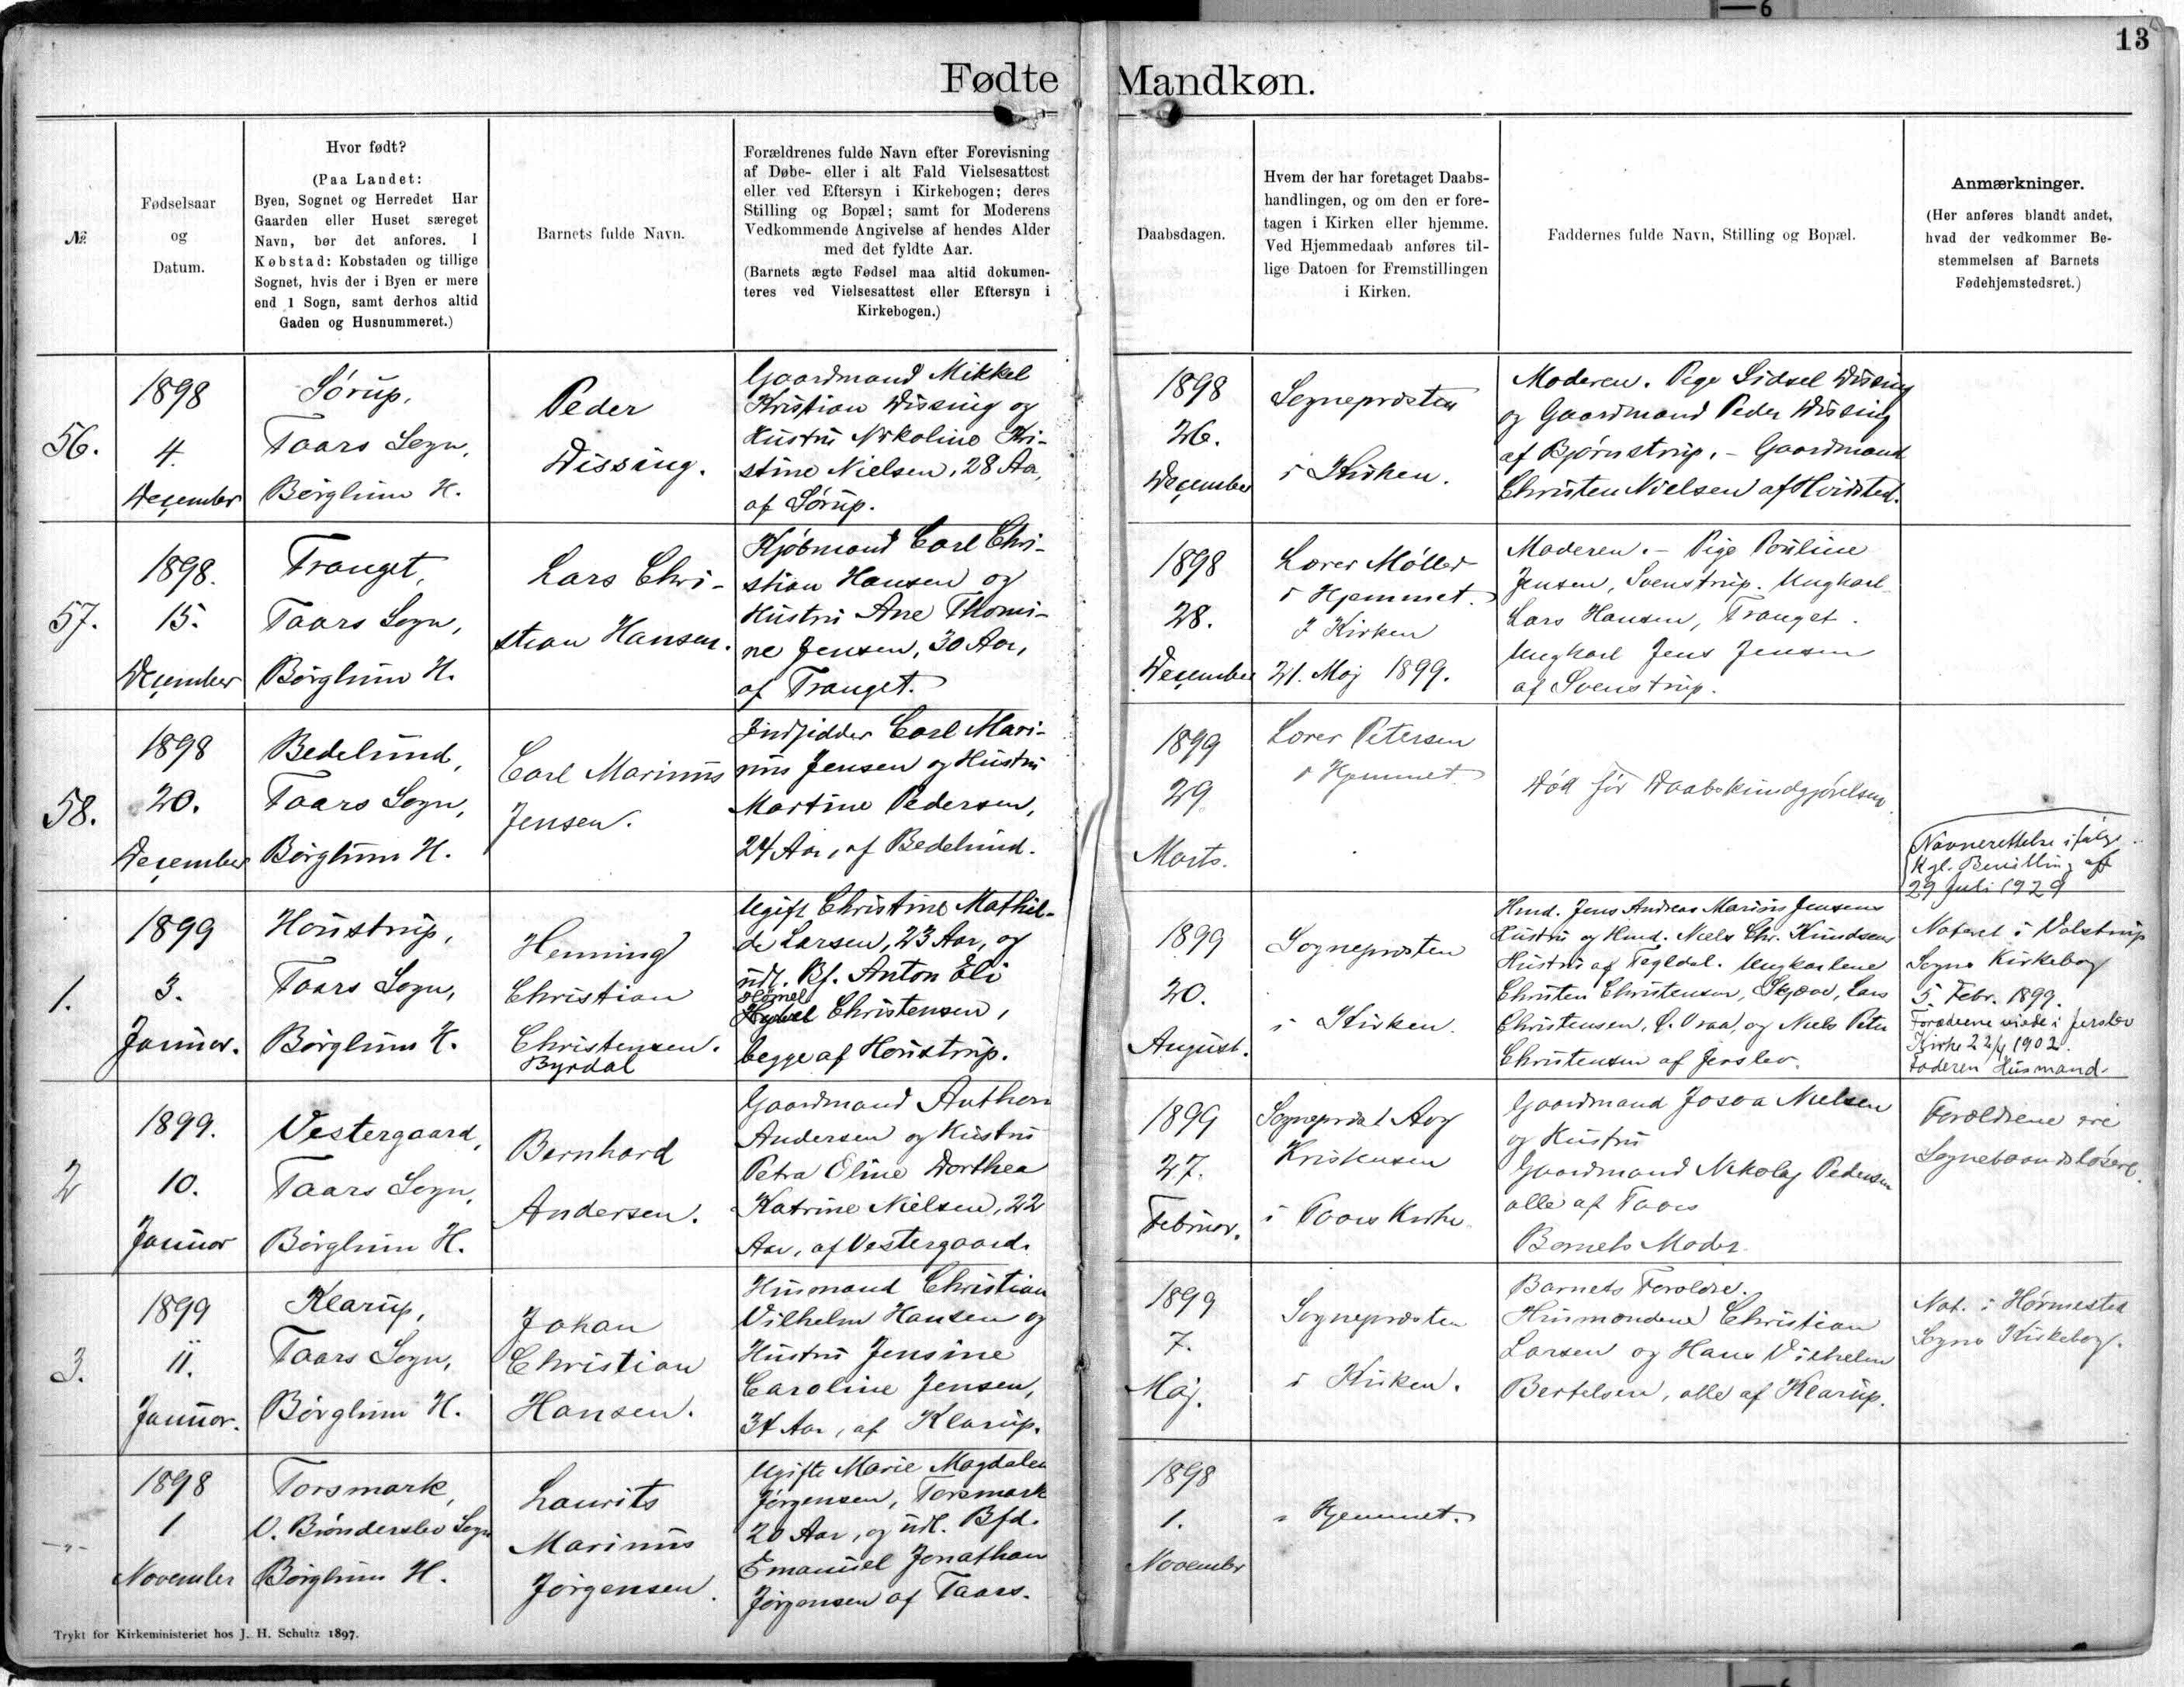 6
13
Fødte Mandkøn.
№
Fødselsaar
og
Datum.
Hvor født?
(Paa Landet:
Byen, Sognet og Herredet Har
Gaarden eller Huset særeget
Navn, bør det anføres. I
Købstad: Købstaden og tillige
Sognet, hvis der i Byen er mere
end 1 Sogn, samt derhos altid
Gaden og Husnummeret.)
Barnets fulde Navn.
Forældrenes fulde Navn efter Forevisning
af Døbe- eller i alt Fald Vielsesattest
eller ved Eftersyn i Kirkebogen; deres
Stilling og Bopæl; samt for Moderens
Vedkommende Angivelse af hendes Alder
med det fyldte Aar.
(Barnets ægte Fødsel maa altid dokumen-
teres ved Vielsesattest eller Eftersyn i
Kirkebogen.)
Daabsdagen.
Hvem der har foretaget Daabs-
handlingen, og om den er fore-
tagen i Kirken eller hjemme.
Ved Hjemmedaab anføres til-
lige Datoen for Fremstillingen
i Kirken.
Faddernes fulde Navn, Stilling og Bopæl.
Anmærkninger.
(Her anføres blandt andet,
hvad der vedkommer Be-
stemmelsen af Barnets
Fødehjemstedsret.)
56.
1898
4.
December
Sørup,
Taars Sogn,
Børglum H.
Peder
Dissing.
Gaardmand Mikkel
Kristian Dissing og
Hustru Nikoline Kri-
stine Nielsen, 28 Aar,
af Sørup.
1898
26.
December
Sognepræsten
i Kirken.
Moderen. Pige Sidsel Dissing
og Gaardmand Peder Dissing
af Bjørnstrup. - Gaardmand
Christen Nielsen af Hvidsted.
57.
1898.
15.
December
Tranget,
Taars Sogn,
Børglum H.
Lars Chri-
stian Hansen.
Kjøbmand Carl Chri-
stian Hansen og
Hustru Ane Thomi-
ne Jensen, 30 Aar,
af Tranget.
1898
28.
December
Lærer Møller
i Hjemmet.
I Kirken
21. Maj 1899.
Moderen. - Pige Pouline
Jensen, Svenstrup. Ungkarl
Lars Hansen, Tranget.
Ungkarl Jens Jensen
af Svenstrup.
58.
1898
20.
December
Bedelund,
Taars Sogn,
Børglum H.
Carl Marinus
Jensen.
Indsidder Carl Mari-
nus Jensen og Hustru
Martine Pedersen,
24 Aar, af Bedelund.
1899
29.
Marts.
Lærer Petersen
i Hjemmet
Død før Daabskundgjørelsen.
1.
1899
3.
Januar.
Houstrup,
Taars Sogn,
Børglum H.
Henning
Christian
Christensen.
Byrdal
Ugift Christine Mathil-
de Larsen, 23 Aar, og
udl. Bf. Anton Eli
Christensen,
begge af Houstrup.
1899
20.
August.
Sognepræsten
i Kirken.
Hmd. Jens Andreas Marius Jensens
Hustru og Hmd. Niels Chr. Knudsens
Hustru af Tegldal. Ungkarlene
Christen Christensen, Skjæve, Lars
Christensen, Ø. Vraa, og Niels Peter
Christensen af Jerslev.
Navnerettelse ifølge
Kgl. Bevilling af
29 Juli 1929
Noteret i Volstrup
Sogns Kirkebog
5. Febr. 1899.
Forældrene viede i Jerslev
Kirke 22/4 1902.
Faderen Husmand.
2
1899.
10.
Januar
Vestergaard,
Taars Sogn,
Børglum H.
Bernhard
Andersen.
Gaardmand Anthon
Andersen og Hustru
Petra Oline Dorthea
Katrine Nielsen, 22
Aar, af Vestergaard.
1899
27.
Februar.
Sognepræst Aog
Kristensen
i Taars Kirke
Gaardmand Josva Nielsen
og Hustru
Gaardmand Nikolaj Pedersen
alle af Taars
Barnets Moder.
Forældrene ere
Sognebaandsløsere.
3.
1899
11.
Januar.
Klarup,
Taars Sogn,
Børglum H.
Johan
Christian
Hansen.
Husmand Christian
Vilhelm Hansen og
Hustru Jensine
Caroline Jensen,
34 Aar, af Klarup.
1899
7.
Maj.
Sognepræsten
i Kirken.
Barnets Forældre.
Husmændene Christian
Larsen og Hans Vilhelm
Bertelsen, alle af Klarup.
Not. i Hørmested
Sogns Kirkebog.
-"-
1898
1
November
Torsmark,
V. Brønderslev Sogn
Børglum H.
Laurits
Marinus
Jørgensen.
Ugifte Marie Magdalen
Jørgensen, Torsmark
20 Aar, og udl. Bfd.
Emanuel Jonathan
Jørgensen af Taars.
1898
1.
November
i Hjemmet.
Trykt for Kirkeministeriet hos J. H. Schultz 1897.